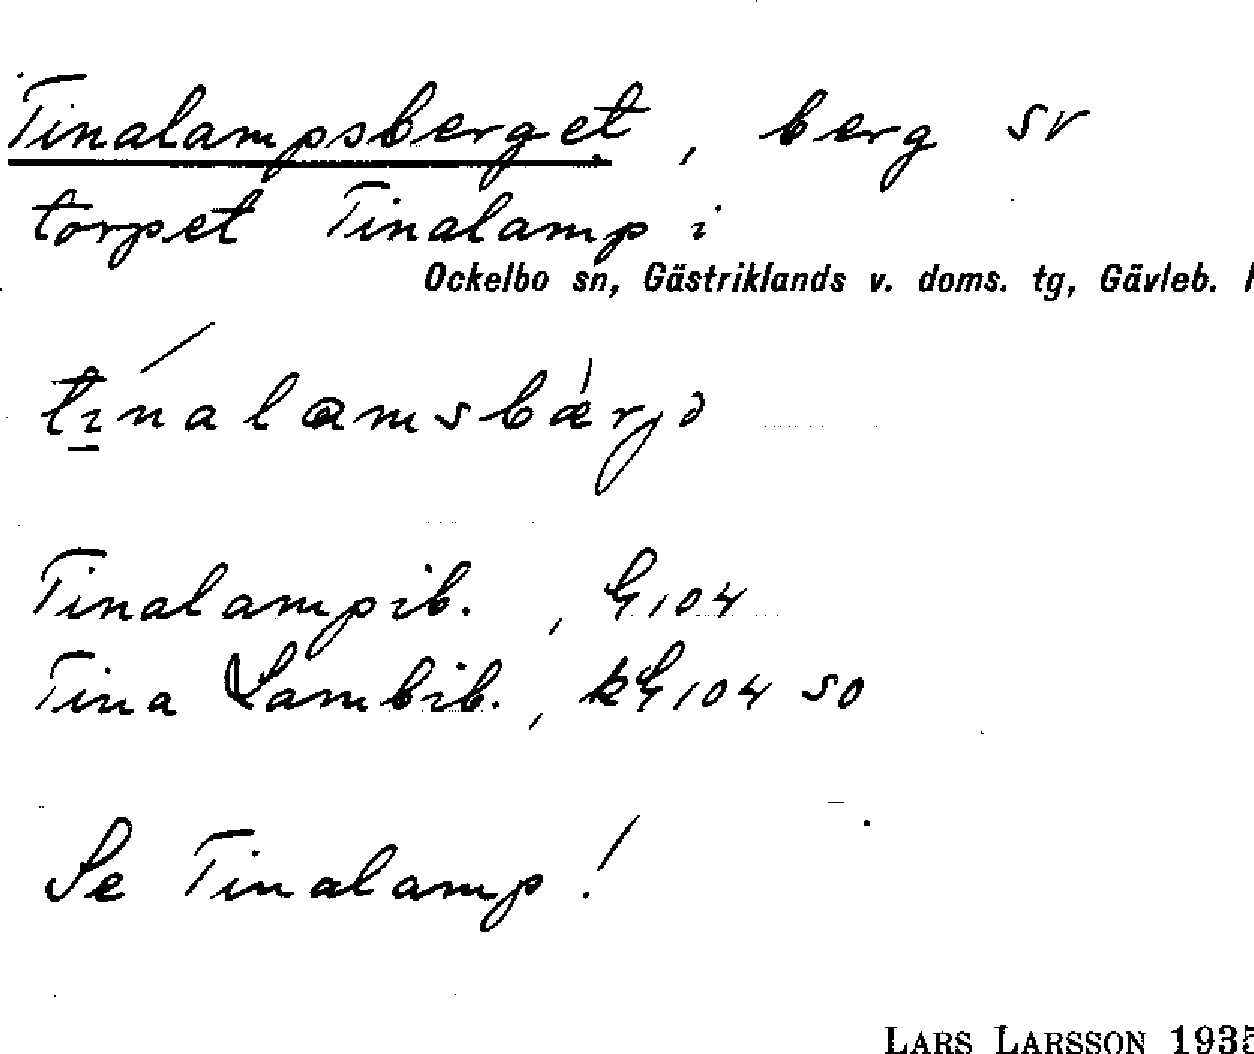 Tinalampsberget, berg SV
torpet Tinalamp i
Ockelbo sn, Gästriklands v. doms. tg, Gävleb.
Tinalampib., G 104
Tina Lambib., kG 104 SO
Se Tinalamp!
LARS LARSSON 1935